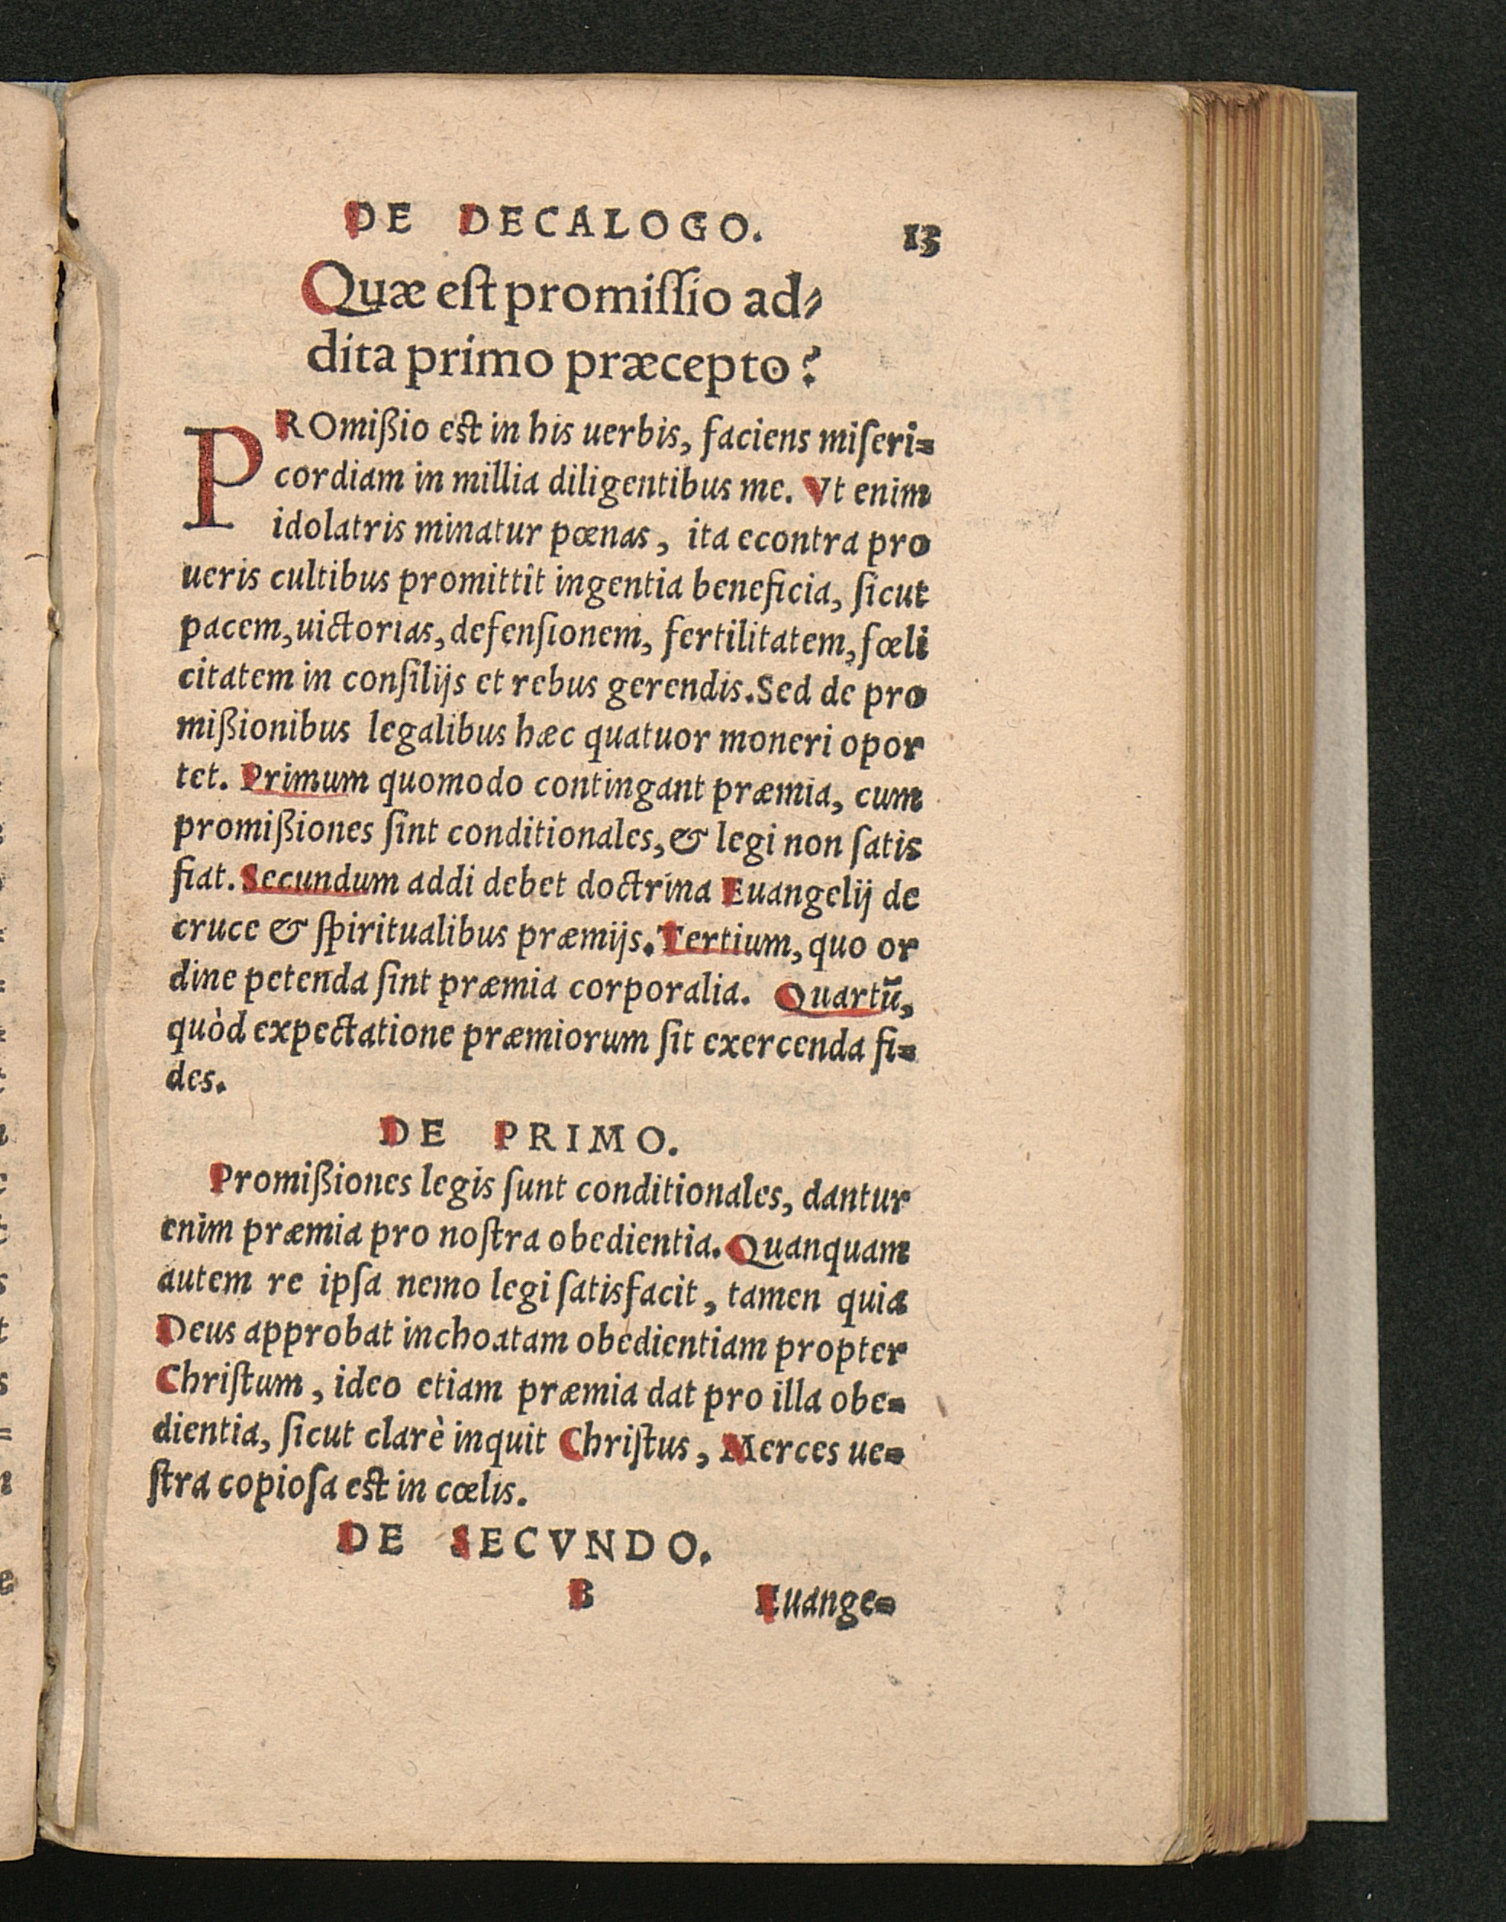 DE DECALOGO. 13
Quæ eſt promiſſio ad⸗
dita primo præcepto?
PROmißio est in his uerbis, faciens miſeri=
cordiam in millia diligentibus me. Vt enim
idolatris minatur pœnas, ita econtra pro
ueris cultibus promittit ingentia beneficia, ſicut
pacem, uictorias, defenſionem, fertilitatem, fœli
citatem in conſilijs et rebus gerendis. Sed de pro
mißionibus legalibus hæc quatuor moneri opor
tet. Primum quomodo contingant præmia, cum
promißiones ſint conditionales, & legi non ſatis
fiat. Secundum addi debet doctrina Euangelij de
cruce & ſpiritualibus præmijs. Tertium, quo or
dine petenda ſint præmia corporalia. Quartū,
quòd expectatione præmiorum ſit exercenda fi=
des.
DE PRIMO.
Promißiones legis ſunt conditionales, dantur
enim præmia pro noſtra obedientia. Quanquam
autem re ipſa nemo legi ſatisfacit, tamen quia
Deus approbat inchoatam obedientiam propter
Chriſtum, ideo etiam præmia dat pro illa obe=
dientia, ſicut clarè inquit Chriſtus, Merces ue=
ſtra copioſa est in cœlis.
DE SECVNDO.
B Euange=